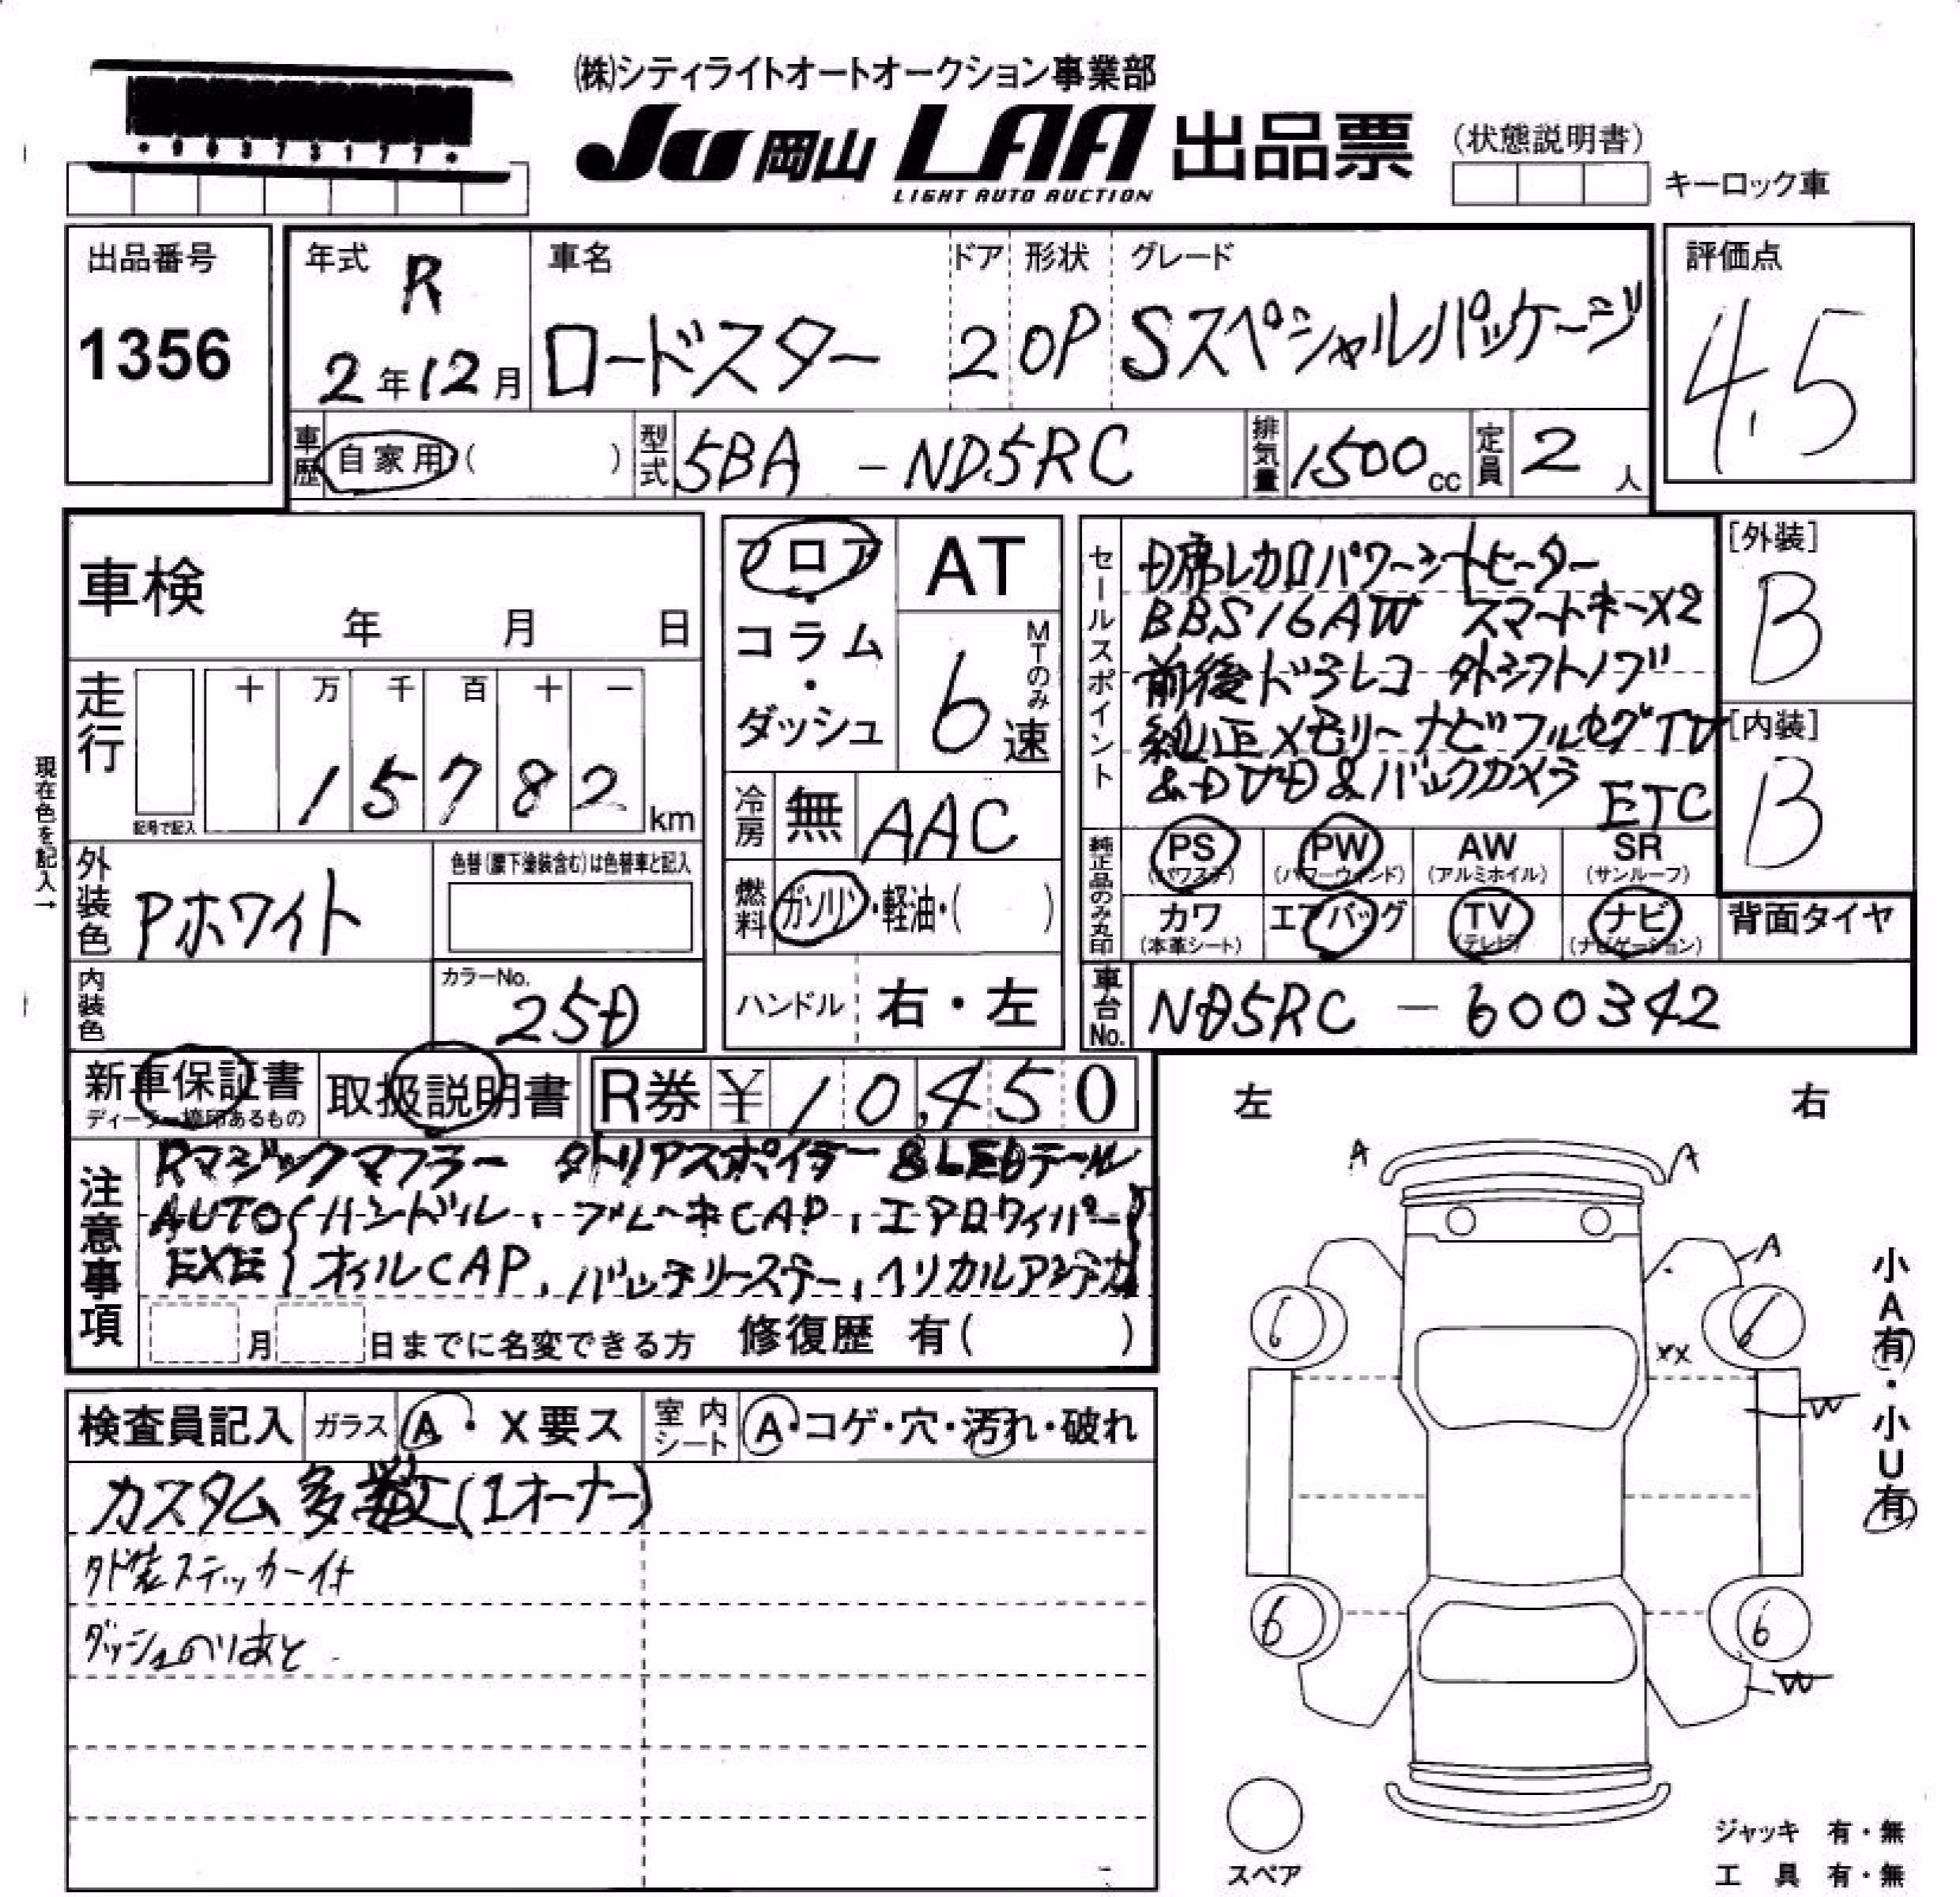 ㈱シティライトオートオークション事業部
JU岡山 LAA 出品票
LIGHT AUTO AUCTION
(状態説明書)
キーロック車
出品番号
1356
年式 R
2年12月
車名
ロードスター
ドア
2
形状
OP
グレード
Sスペシャルパッケージ
評価点
4.5
車歴 自家用( )
型式 5BA - ND5RC
排気量 1500cc
定員 2人
車検
年 月 日
走行
十 万 千 百 十 一
15782 km
記号で記入
現在色を記入→
外装色 Pホワイト
色替(腰下塗装含む)は色替車と記入
内装色
カラーNo.
25D
フロア・コラム・ダッシュ
AT
MTのみ
6速
冷房 無 AAC
燃料 ガソリン・軽油・( )
ハンドル 右・左
セールスポイント
D席レカロパワーシートヒーター
BBS16AW スマートキーX2
前後ドラレコ 外シフトノブ
純正メモリーナビフルセグTV
&DVD&バックカメラ ETC
純正品のみ丸印
PS (パワステ)
PW (パワーウィンド)
AW (アルミホイル)
SR (サンルーフ)
カワ (本革シート)
エアバッグ
TV (テレビ)
ナビ (ナビゲーション)
背面タイヤ
[外装]
B
[内装]
B
車台No. ND5RC - 600342
新車保証書
ディーラー捺印あるもの
取扱説明書
R券 ¥ 10,450
注意事項
Rマジックマフラー 外リアスポイラー&LEDテール
AUTO{ハンドル、ブレーキCAP、エアロワイパー}
EXE{オイルCAP、バッテリーステー、ヘリカルアンテナ}
月 日までに名変できる方 修復歴 有( )
検査員記入
ガラス A・X要ス
室内シート A・コゲ・穴・汚れ・破れ
カスタム多数(1オーナー)
外装ステッカー付
ダッシュのりあと
左 右
A A
A
6 6
XX
W
6 6
W
小A有・小U有
スペア
ジャッキ 有・無
工具 有・無